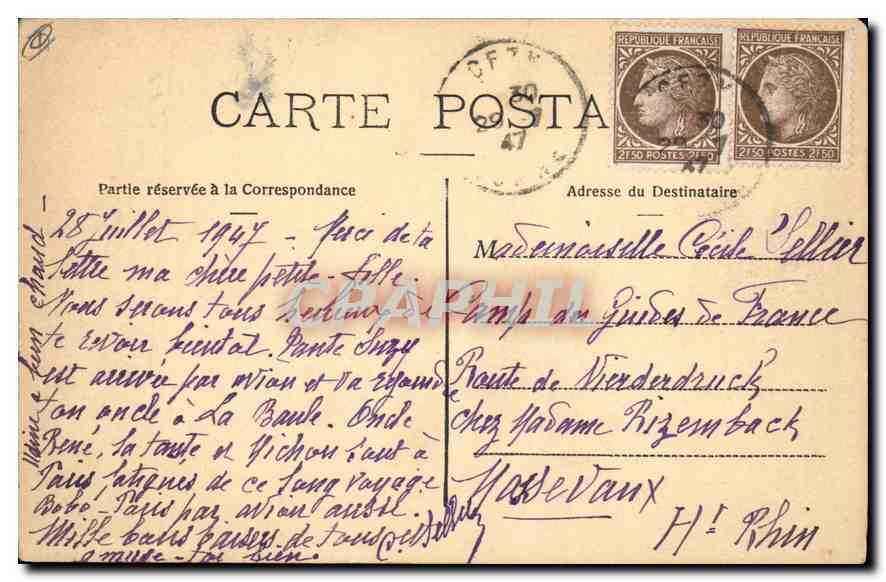 CARTE POSTA
RÉPUBLIQUE FRANÇAISE
2F50 POSTES 2F50
RÉPUBLIQUE FRANÇAISE
2F50 POSTES 2F50
CEZY
30
29 7
47
YONNE
Partie réservée à la Correspondance
28 Juillet 1947 - Merci de ta
lettre ma chère petite fille.
Nous serons tous heureux de
te revoir bientôt. Tante Suzy
est arrivée par avion et va rejoindre
ton oncle à La Baule. Oncle
René, la tante et Michou sont à
Paris fatigués de ce long voyage
Bobo - Paris par avion aussi.
Mille bons baisers de tous
amuse-toi bien.
bien chaud -
Adresse du Destinataire
Mademoiselle Cécile Sellier
Camp des Guides de France
Route de Nierderdruck
chez Madame Rizembach
Massevaux
Ht Rhin
CPAPHIL